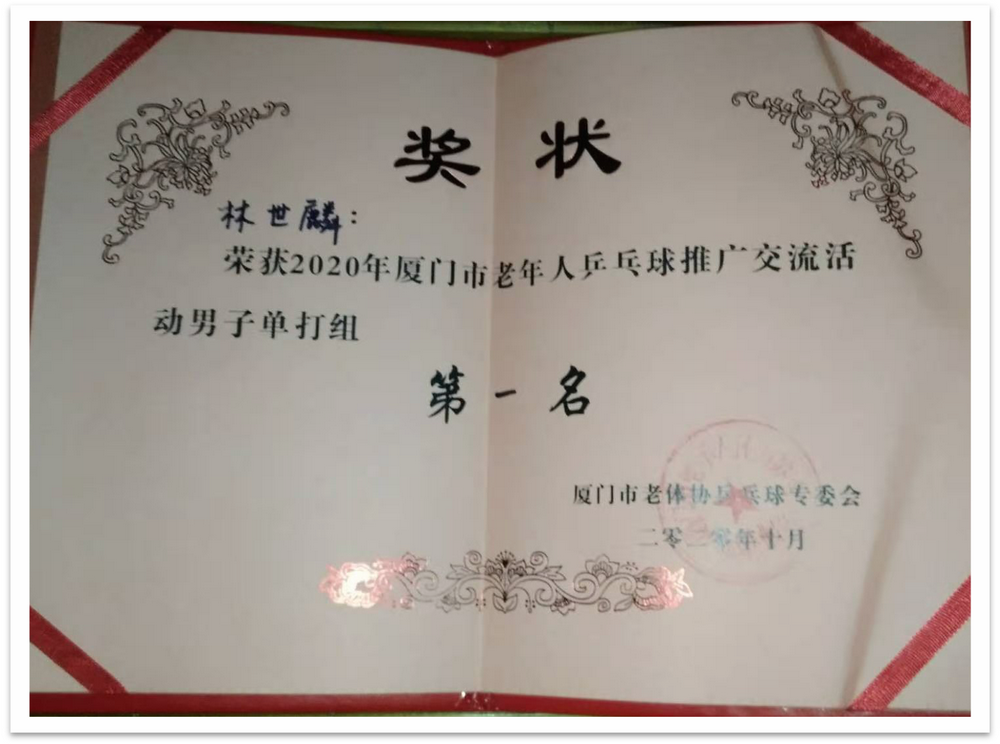 奖状
林世麟：
荣获2020年厦门市老年人乒乓球推广交流活
动男子单打组
第一名
厦门市老体协乒乓球专委会
二零二零年十月